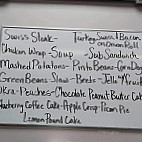 Swiss Steak - Turkey Swiss & Bacon
on Onion Roll
Chicken Wrap - Soup - Sub Sandwich
Mashed Potatoes - Pinto Beans - Corn Dog
Green Beans - Slaw - Beets - Jello & Fruit
Okra - Peaches - Chocolate Peanut Butter Cake
Blueberry Coffee Cake - Apple Crisp - Pecan Pie
Lemon Pound Cake